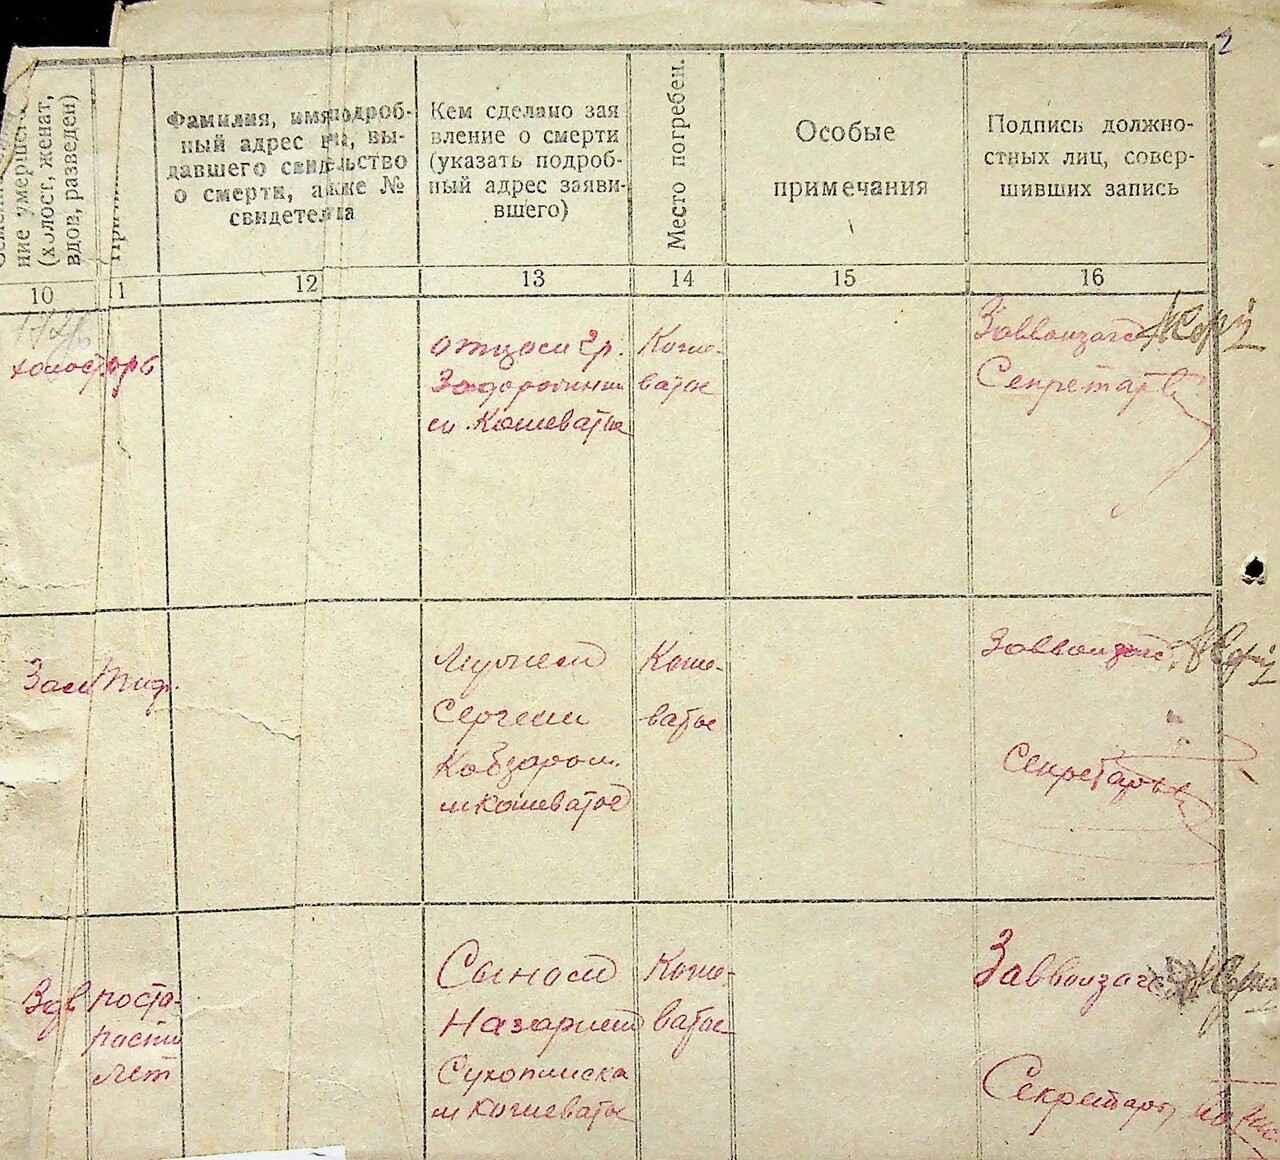 2
ние умерше
(холост, женат,
вдов, разведен)
Фамилия, имя подроб-
ный адрес вы-
давшего свидетельство
о смерти, также №
свидетел
Кем сделано зая
вление о смерти
(указать подроб-
ный адрес заяви-
вшего)
Место погребен.
Особые
примечания
Подпись должно-
стных лиц, совер-
шивших запись
10
11
12
13
14
15
16
холост
отцом гр.
с. Кошеватое
Коше-
ватое
Секретарь
Зам
Мужем
Сергеем
Кобзарем
м Кошеватое
Коше-
ватое
Секретарь
Вдв
по ста-
рости
лет
Сыном
Назарием
м Кошеватое
Коше-
ватое
Секретарь